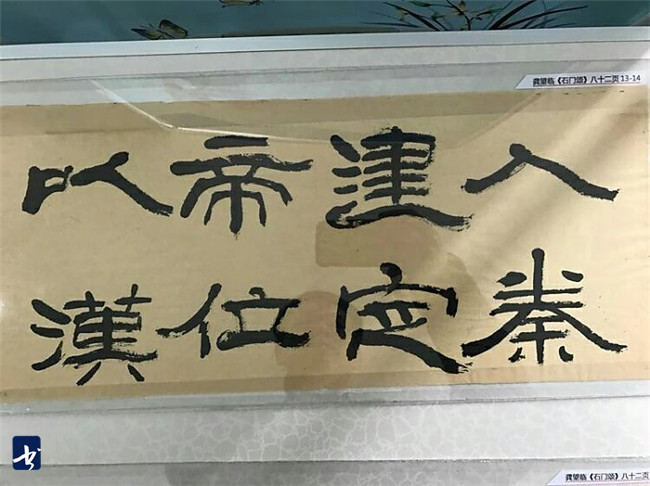 龚望临《石门颂》八十二页 13-14
入秦
建定
帝位
以漢
龚望临《石门颂》八十二页